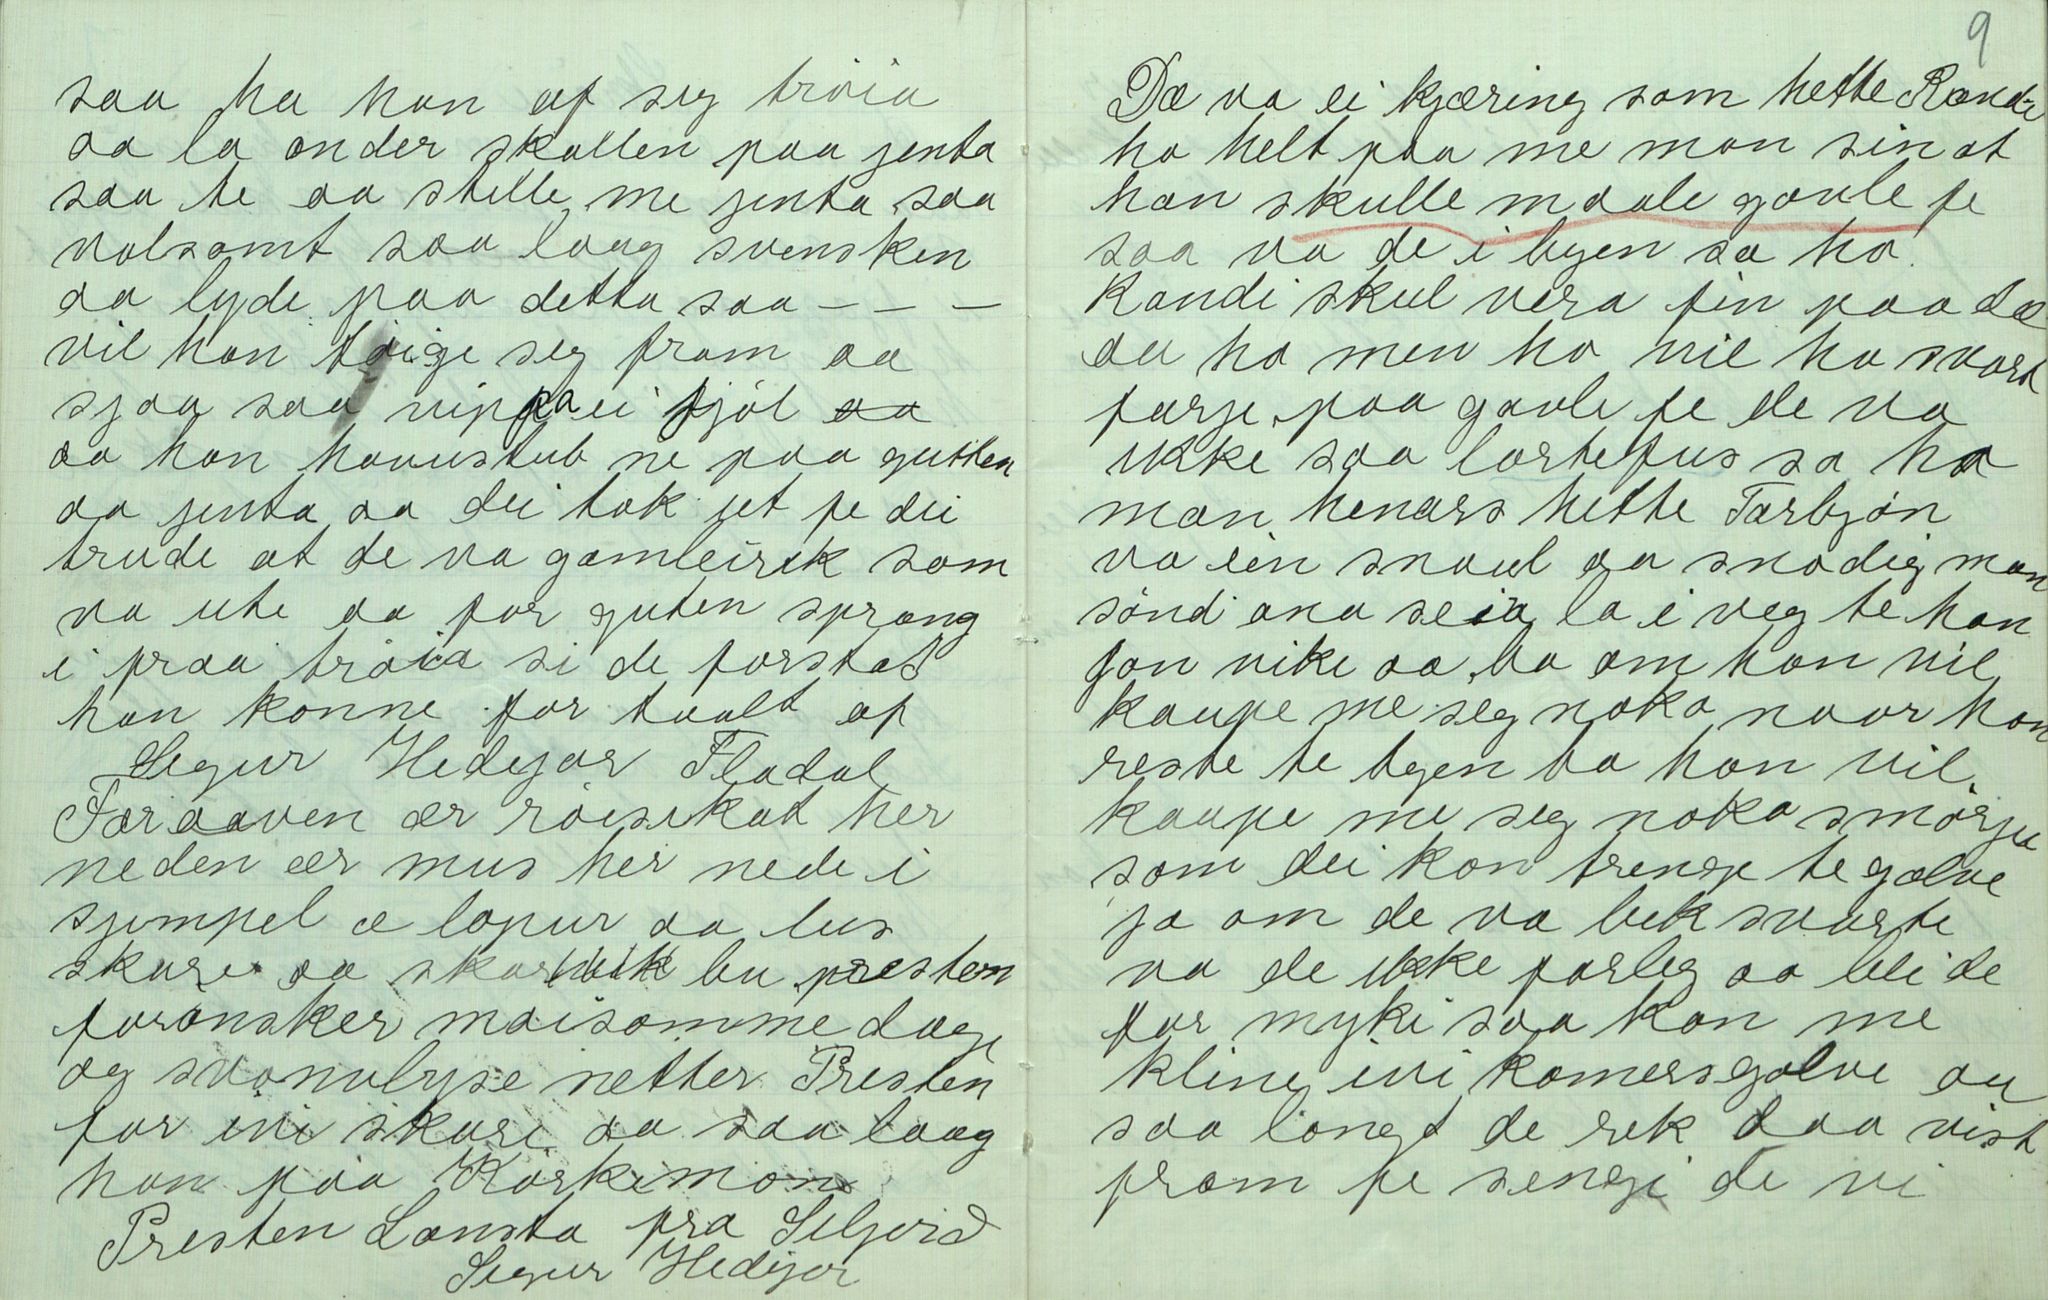 saa ha han af seg tröia
aa la onder skallen paa jenta
saa te aa stelle me jenta saa
valsamt saa laag svensken
aa lyde paa detta saa – – –
vil han töige seg fram aa
sjaa saa vippa ei fjöl
aa han hauustub ne paa gutten
aa jenta aa dei tok jet fe dei
trude at de va gamleirik som
va ute aa for guten sprang
i fraa tröia si de forstod
han konne for taalt af
Segur Hedejor Fladal
Faraaven ær röisekat her
neden ær mus her nede i
sjimpel æ lopur aa lus
skare aa skarvik bu presten
forönsker moisomme dage
og svovnulyse netter Presten
for ivi skare aa saa laag
han paa Körkemon
Presten Lansta fra Seljord
Segur Hedejor
9
Dæ va ei kjæring som hette Rande
ho helt paa me man sin at
han skulle maale gaule fe
saa va de i byen sa ho
Randi skul vera fin paa dæ
au ho men ho vil ha svart
farje paa gaule fe de va
ikke saa lortefus sa ho
man henars hette Tarbjön
va ein snaul aa snodig man
sönd ana seia la i veg te han
Jon vike aa ba om han vil
kaupe me seg noko naar han
reste te byen ba han vil
kaupe me seg noko smörju
som dei kon trenge te golve
ja om de va bek svarte
va de ikke farleg aa blei de
for myki saa kon me
kline ivi komersgolve au
saa langt de rek daa vist
fram fe sengi de vi